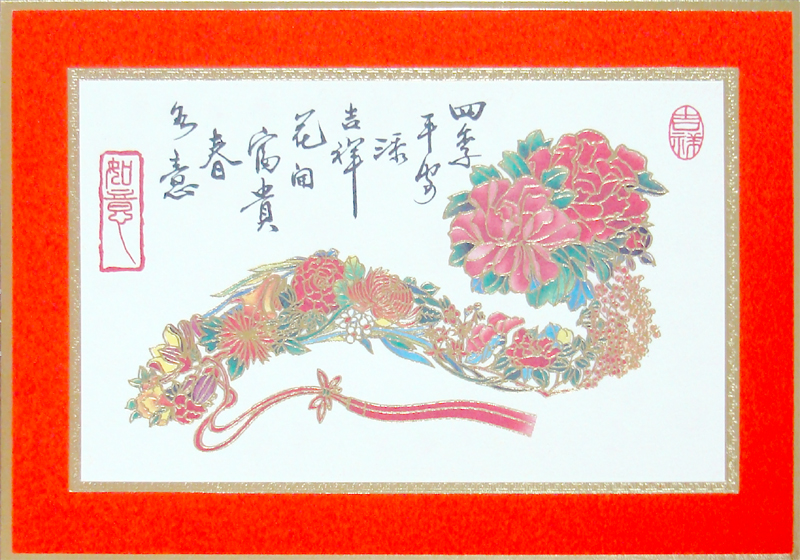 吉祥
四季
平安
添
吉祥
花開
富貴
春
如意
如意